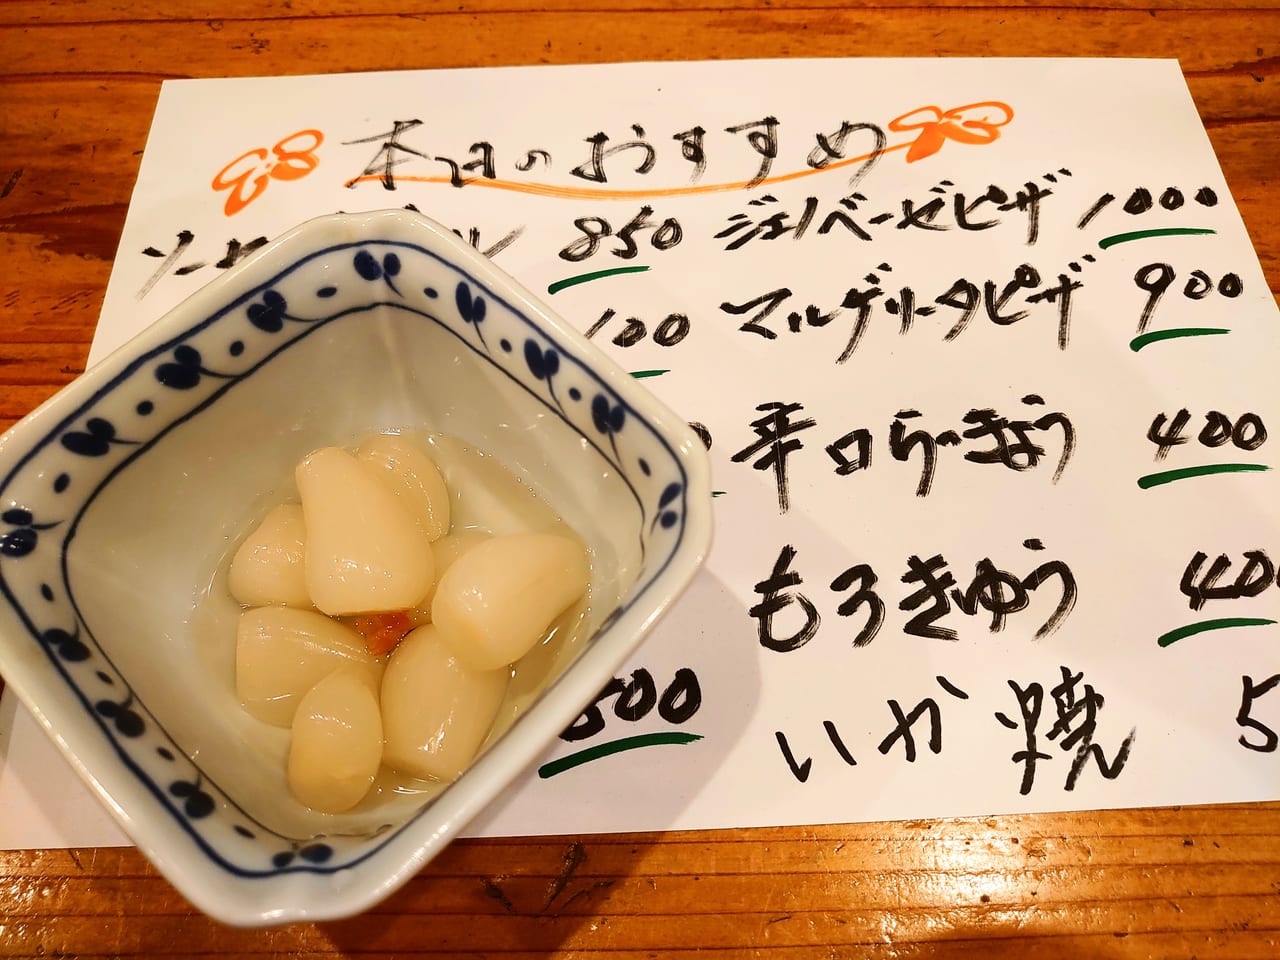 本日のおすすめ
850 ジェノベーゼピザ 1000
100 マルゲリータピザ 900
辛口らっきょう 400
もろきゅう 400
500 いか焼 5